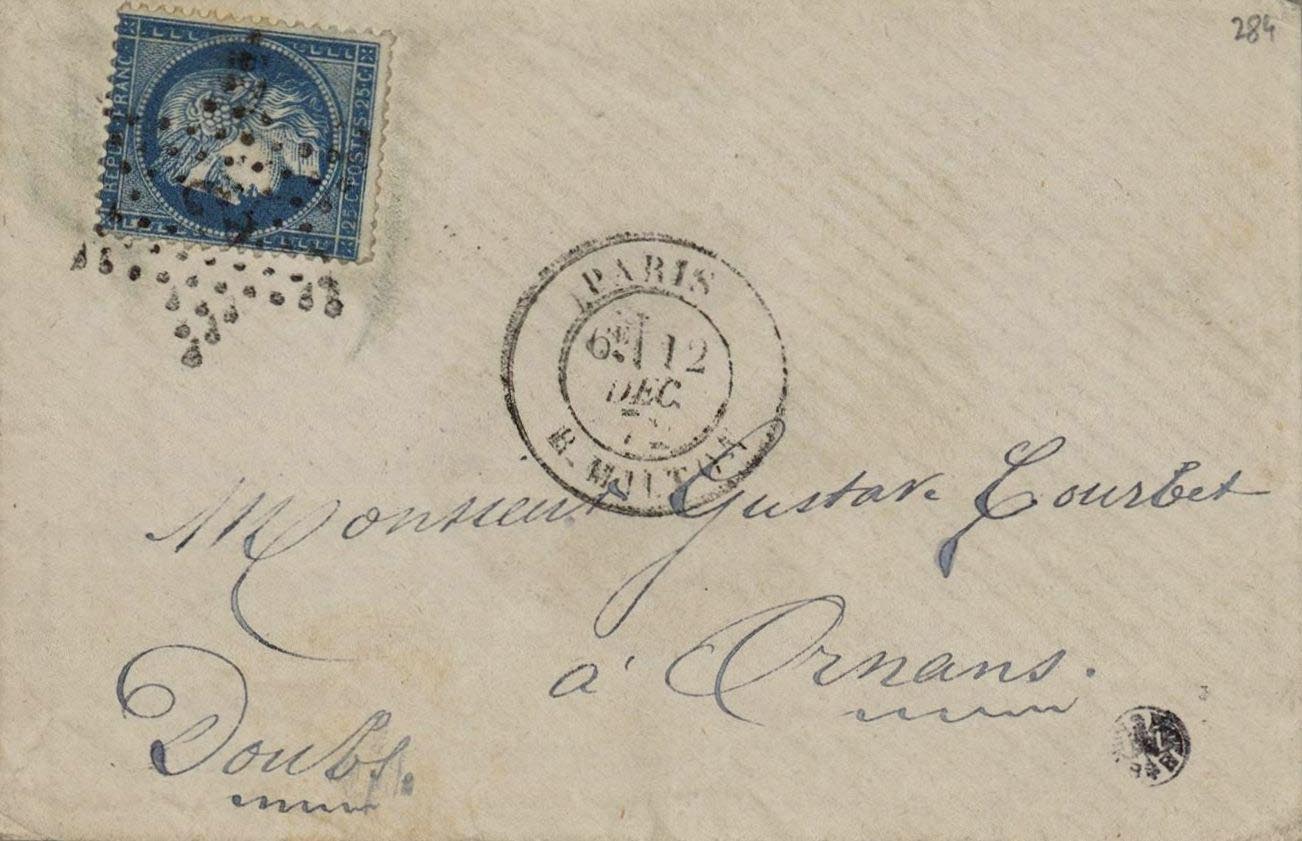 284
REPUB. FRANC.
25 C. POSTES. 25 C
PARIS
6E 12
DEC.
72
R. MILTON
Monsieur Gustave Courbet
à Ornans.
Doubs.